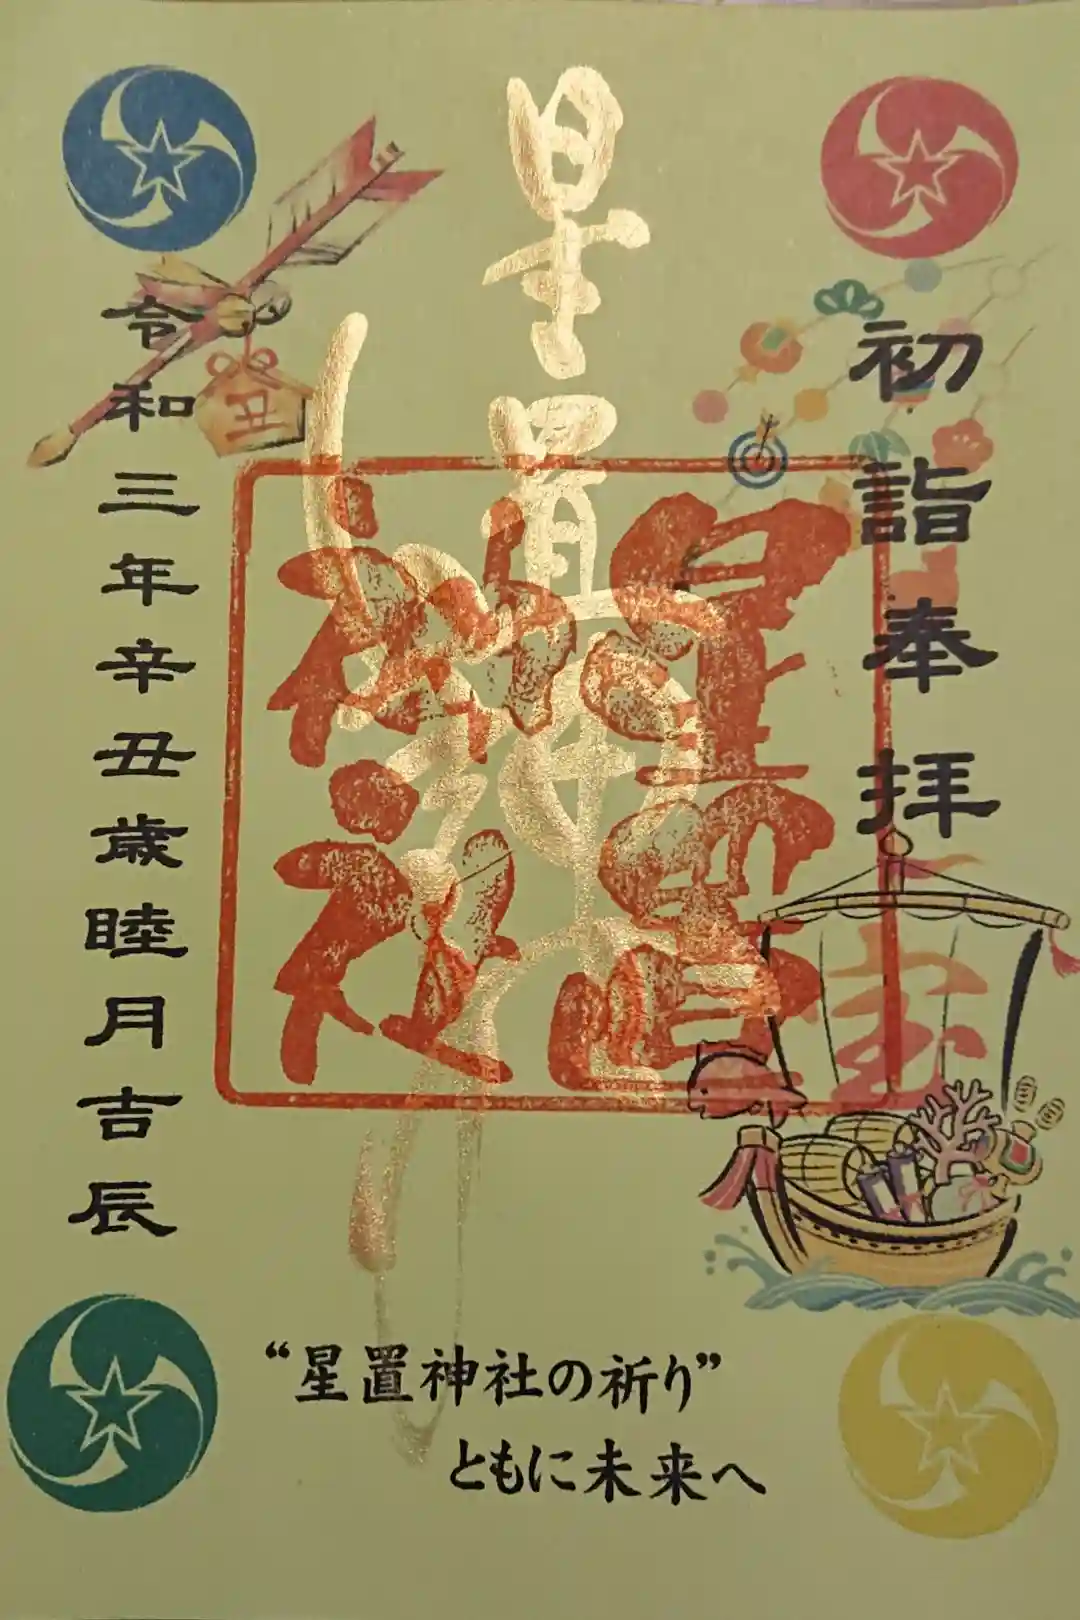 初詣奉拝
星置神社
星置神社
令和三年辛丑歳睦月吉辰
丑
宝
“星置神社の祈り”
ともに未来へ